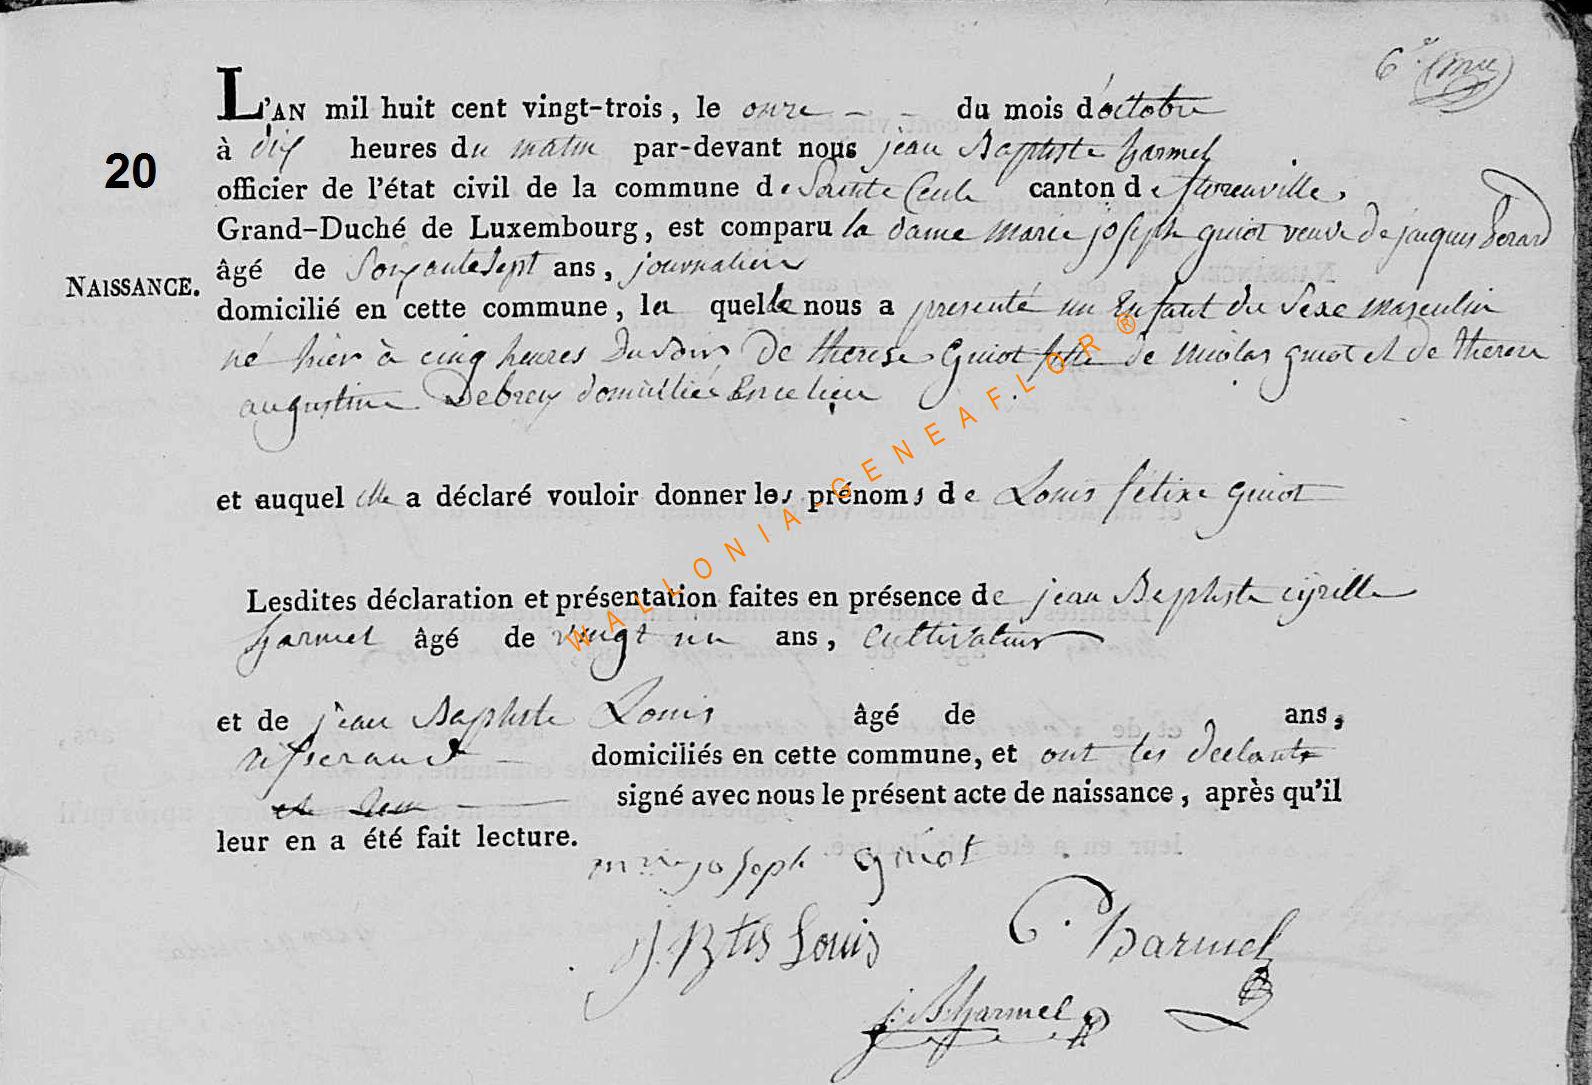 6e
20
L'AN mil huit cent vingt-trois, le onze - - du mois d'octobre
à dix heures du matin par-devant nous jean Baptiste harmel
officier de l'état civil de la commune de Sainte Cecile canton de florenville.
Grand-Duché de Luxembourg, est comparu la dame marie joseph guiot veuve de jacques
âgé de Soixante Sept ans, journaliere
NAISSANCE.
domicilié en cette commune, la quelle nous a presenté un Enfant du Sexe masculin
né hier à cinq heures Du soir De therese Guiot fille de nicolas guiot et de therese
augustine domiciliée En ce lieu
et auquel elle a déclaré vouloir donner les prénoms de Louis félixe guiot
Lesdites déclaration et présentation faites en présence de jean Baptiste cyrille
harmel âgé de vingt un ans, cultivateur
et de jean Baptiste Louis âgé de ans,
tisserand - domiciliés en cette commune, et ont les declants
signé avec nous le présent acte de naissance, après qu'il
leur en a été fait lecture.
marie joseph guiot
J. Btis Louis C. harmel
j: B harmel
WALLONIA-GENEAFLOR ®